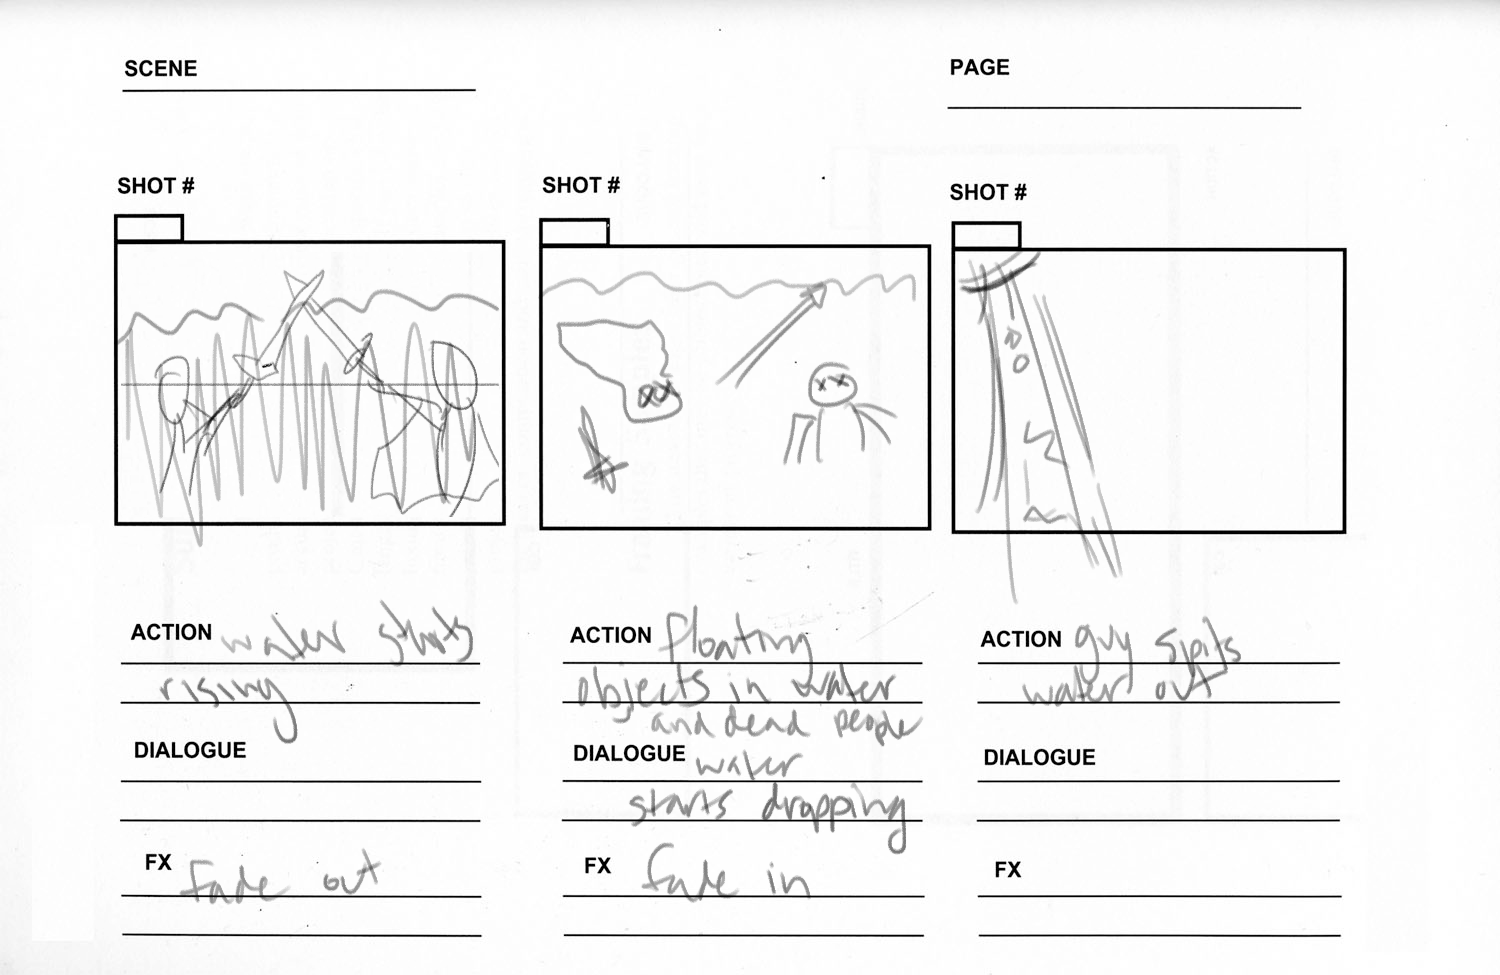 SCENE
PAGE
SHOT #
SHOT #
SHOT #
ACTION water starts
rising
DIALOGUE
FX Fade out
ACTION floating
objects in water
and dead people
DIALOGUE water
starts dropping
FX fade in
ACTION guy spits
water out
DIALOGUE
FX